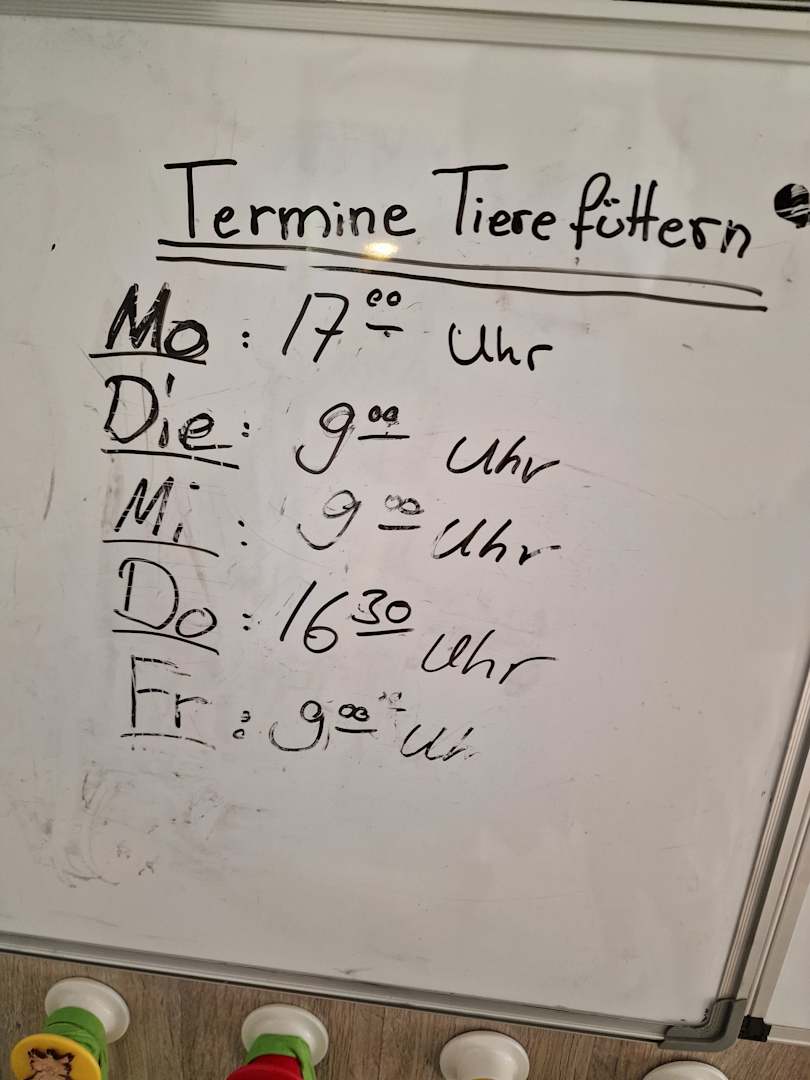 Termine Tiere füttern
Mo: 17⁰⁰ Uhr
Die: 9⁰⁰ Uhr
Mi: 9⁰⁰ Uhr
Do: 16³⁰ Uhr
Fr: 9⁰⁰ Uh